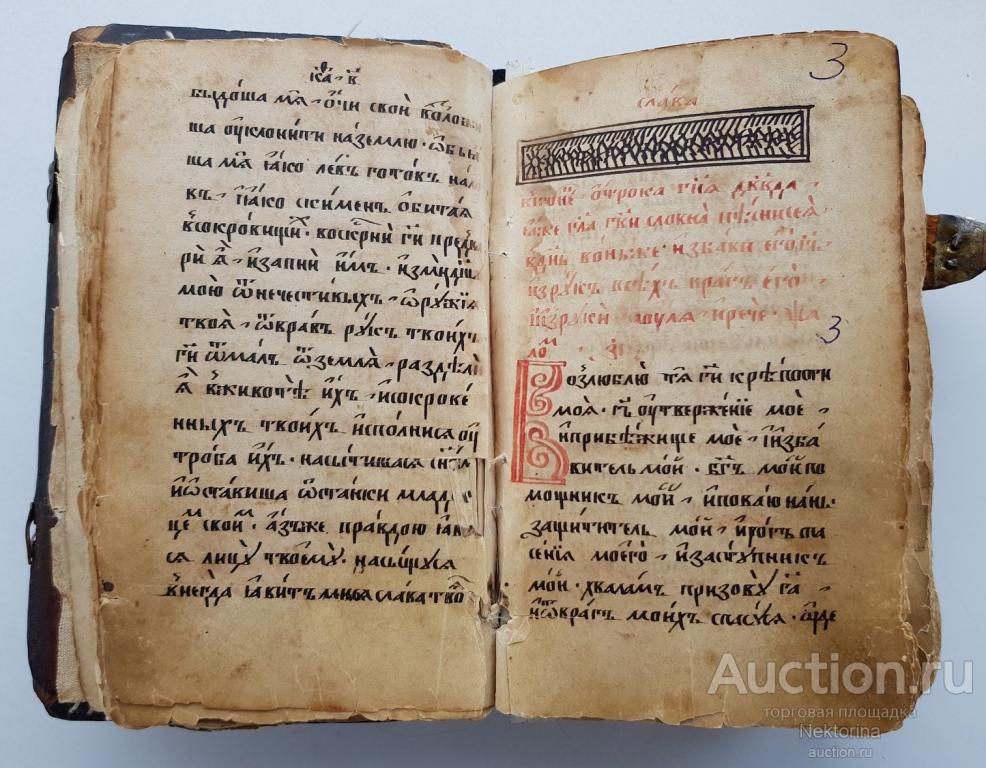 каѳ· в҃
быдоша мѧ̀ · ѻ҆́чи свои̑ возложи
ша ᲂу҆клони́ти на́землю · ѡ҆б̾ѧ
ша мѧ̀ ꙗ҆́кѡ ле́въ гото́въ на ло
въ · и҆ꙗ҆́кѡ ски́менъ ѻ҆бита́ѧ
в̾сокро́вищи · воскр҃нѝ гд҇и предва
рѝ ѧ҆̀ · и҆запнѝ и҆̀мъ · и҆зми дш҃ꙋ
мою̀ ѿнечести́выхъ · ѻ҆рꙋ́жїѧ
твоѧ̀ · ѿвра́гъ рꙋкъ твои́хъ
гд҇и ѿма́лъ ѿземлѧ̀ · раздѣлѝ
ѧ҆̀ в̾животѣ̀ и҆́хъ · и҆сокрове́
нныхъ твои́хъ и҆спо́лнисѧ ᲂу҆
тро́ба и҆́хъ · насы́тишасѧ сн҃ѡ́въ
и҆ѡ҆ста́виша ѡ҆ста́нки младе́
це́мъ свои́мъ · а҆́зъже пра́вдою ꙗ҆влю
сѧ лицꙋ̀ твоемꙋ̀ · насы́щꙋсѧ
внегда̀ ꙗ҆ви́тъмисѧ сла́ва твоѧ̀
3
сла́ва
в̾коне́цъ · ѻ҆́трока гд҇нѧ дв҃да
ꙗ҆́же гл҃а гд҇ви словеса̀ пѣ́сни сеѧ̀
в̾дн҃ь во́ньже · и҆зба́ви є҆гѡ̀ гд҇ь
и҆зрꙋ́къ всѣ́хъ вра́гъ є҆гѡ̀ ·
и҆и҆зрꙋкѝ саꙋ́лѧ · и҆речѐ · ѱа
ло́мъ · з҃і
3
Возлюблю̀ тѧ̀ гд҇и крѣ́пости
моѧ̀ · гд҇ь ᲂу҆твержє́нїе моѐ ·
и҆прибѣ́жище моѐ · и҆и҆зба́
ви́тель мо́й · бг҃ъ мо́й по
мо́щникъ мо́й · и҆ᲂупова́ю на́нь ·
защи́титель мо́й · и҆ро́гъ спа
се́нїѧ моегѡ̀ · и҆застꙋ́пникъ
мо́й · хвала̀мъ призовꙋ̀ гд҇а
и҆ѿвра́гъ мои́хъ спасꙋ́сѧ · ѡ҆де
Auction.ru
торговая площадка
Nektorina
auction.ru